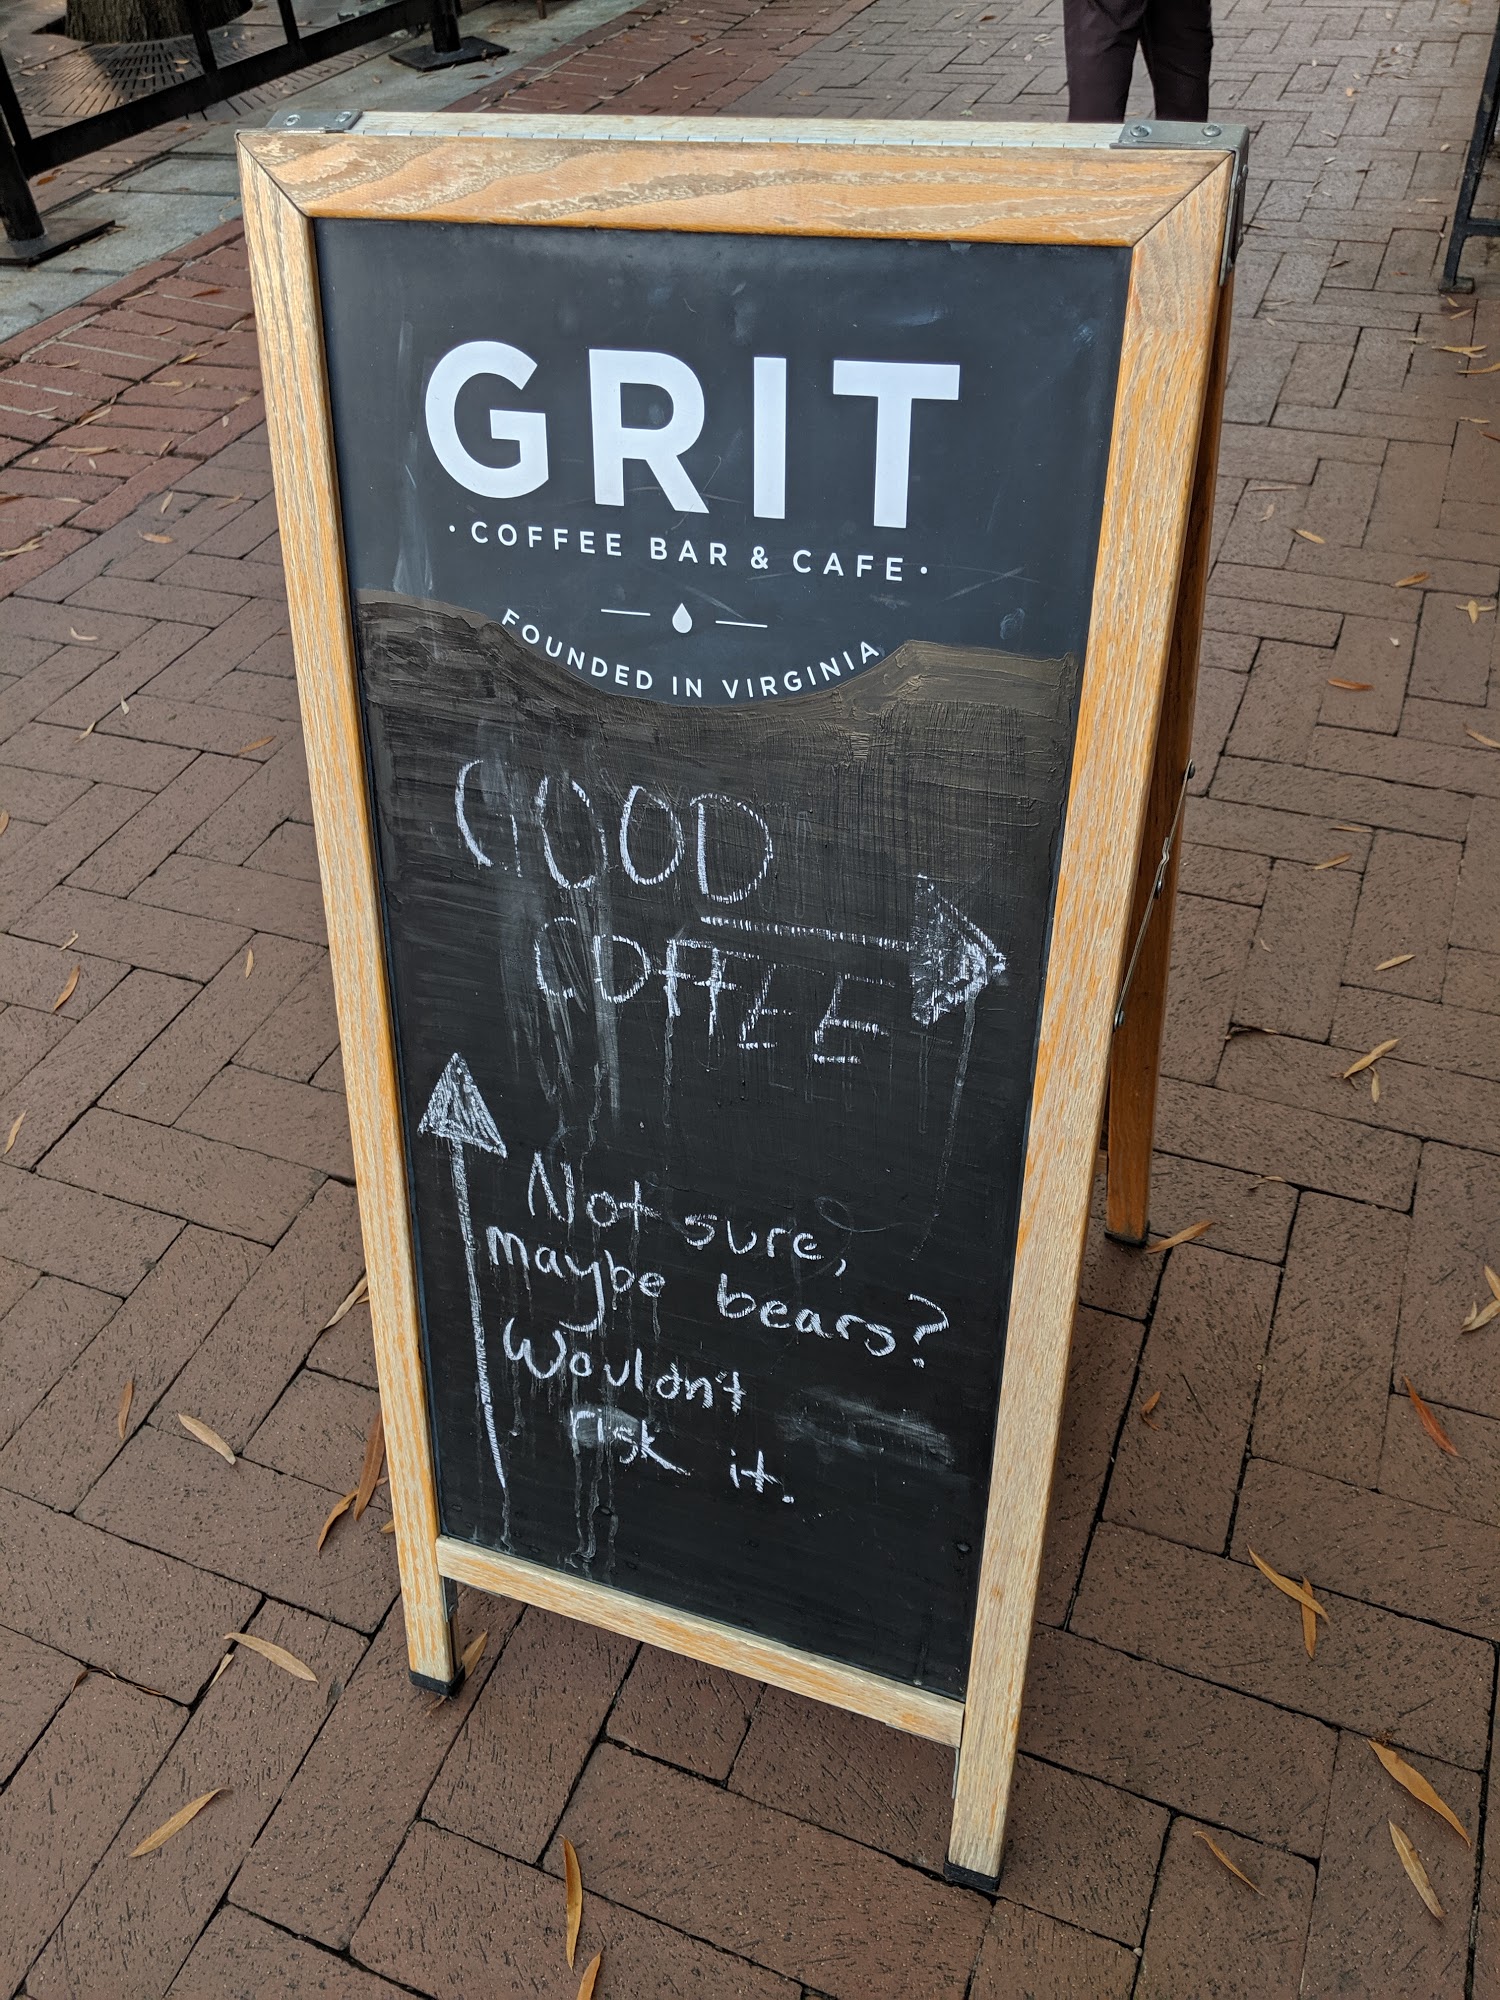 GRIT
· COFFEE BAR & CAFE ·
FOUNDED IN VIRGINIA
GOOD
COFFEE
Not sure,
maybe bears?
Wouldn't
risk it.